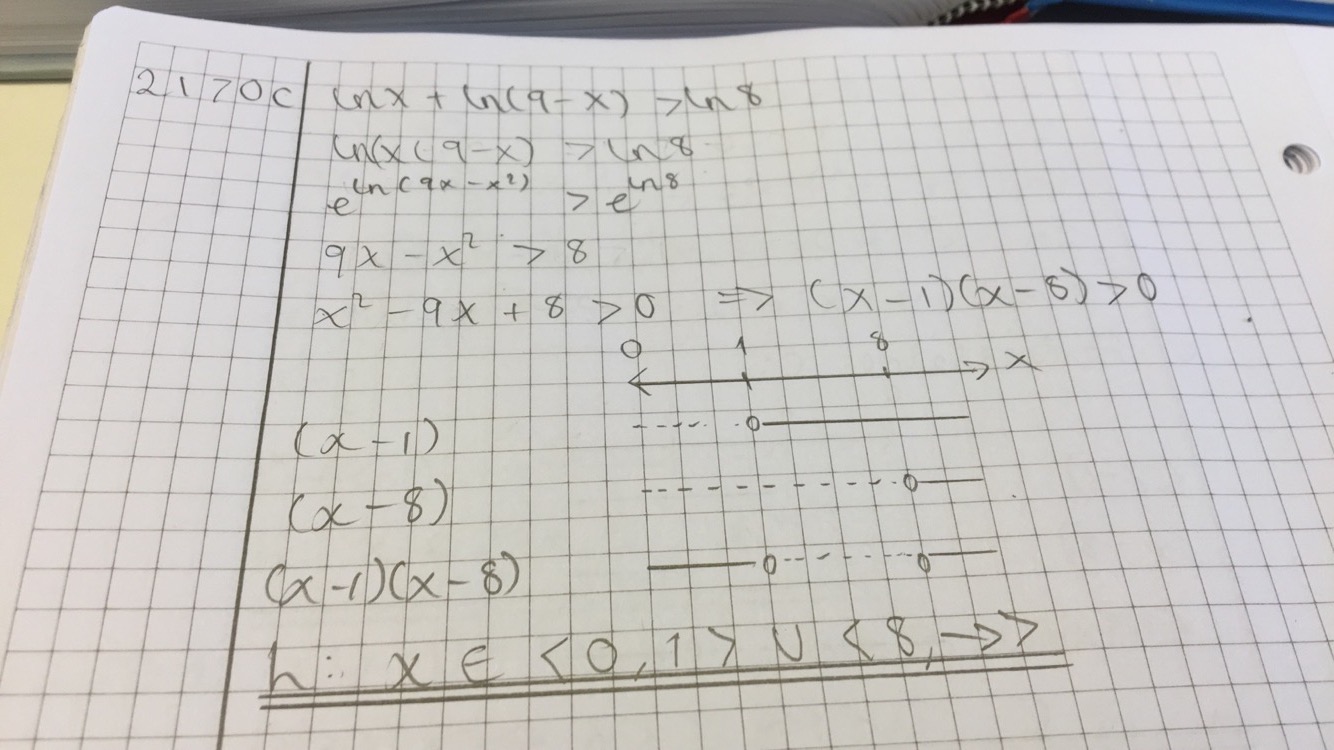 2170c lnx + ln(9-x) > ln8
ln(x(9-x) > ln8
e^ln(9x-x²) > e^ln8
9x - x² > 8
x² - 9x + 8 > 0 => (x-1)(x-8) > 0
0 1 8
x
(x-1)
(x-8)
(x-1)(x-8)
h: x ∈ <0,1> ∪ <8,→>